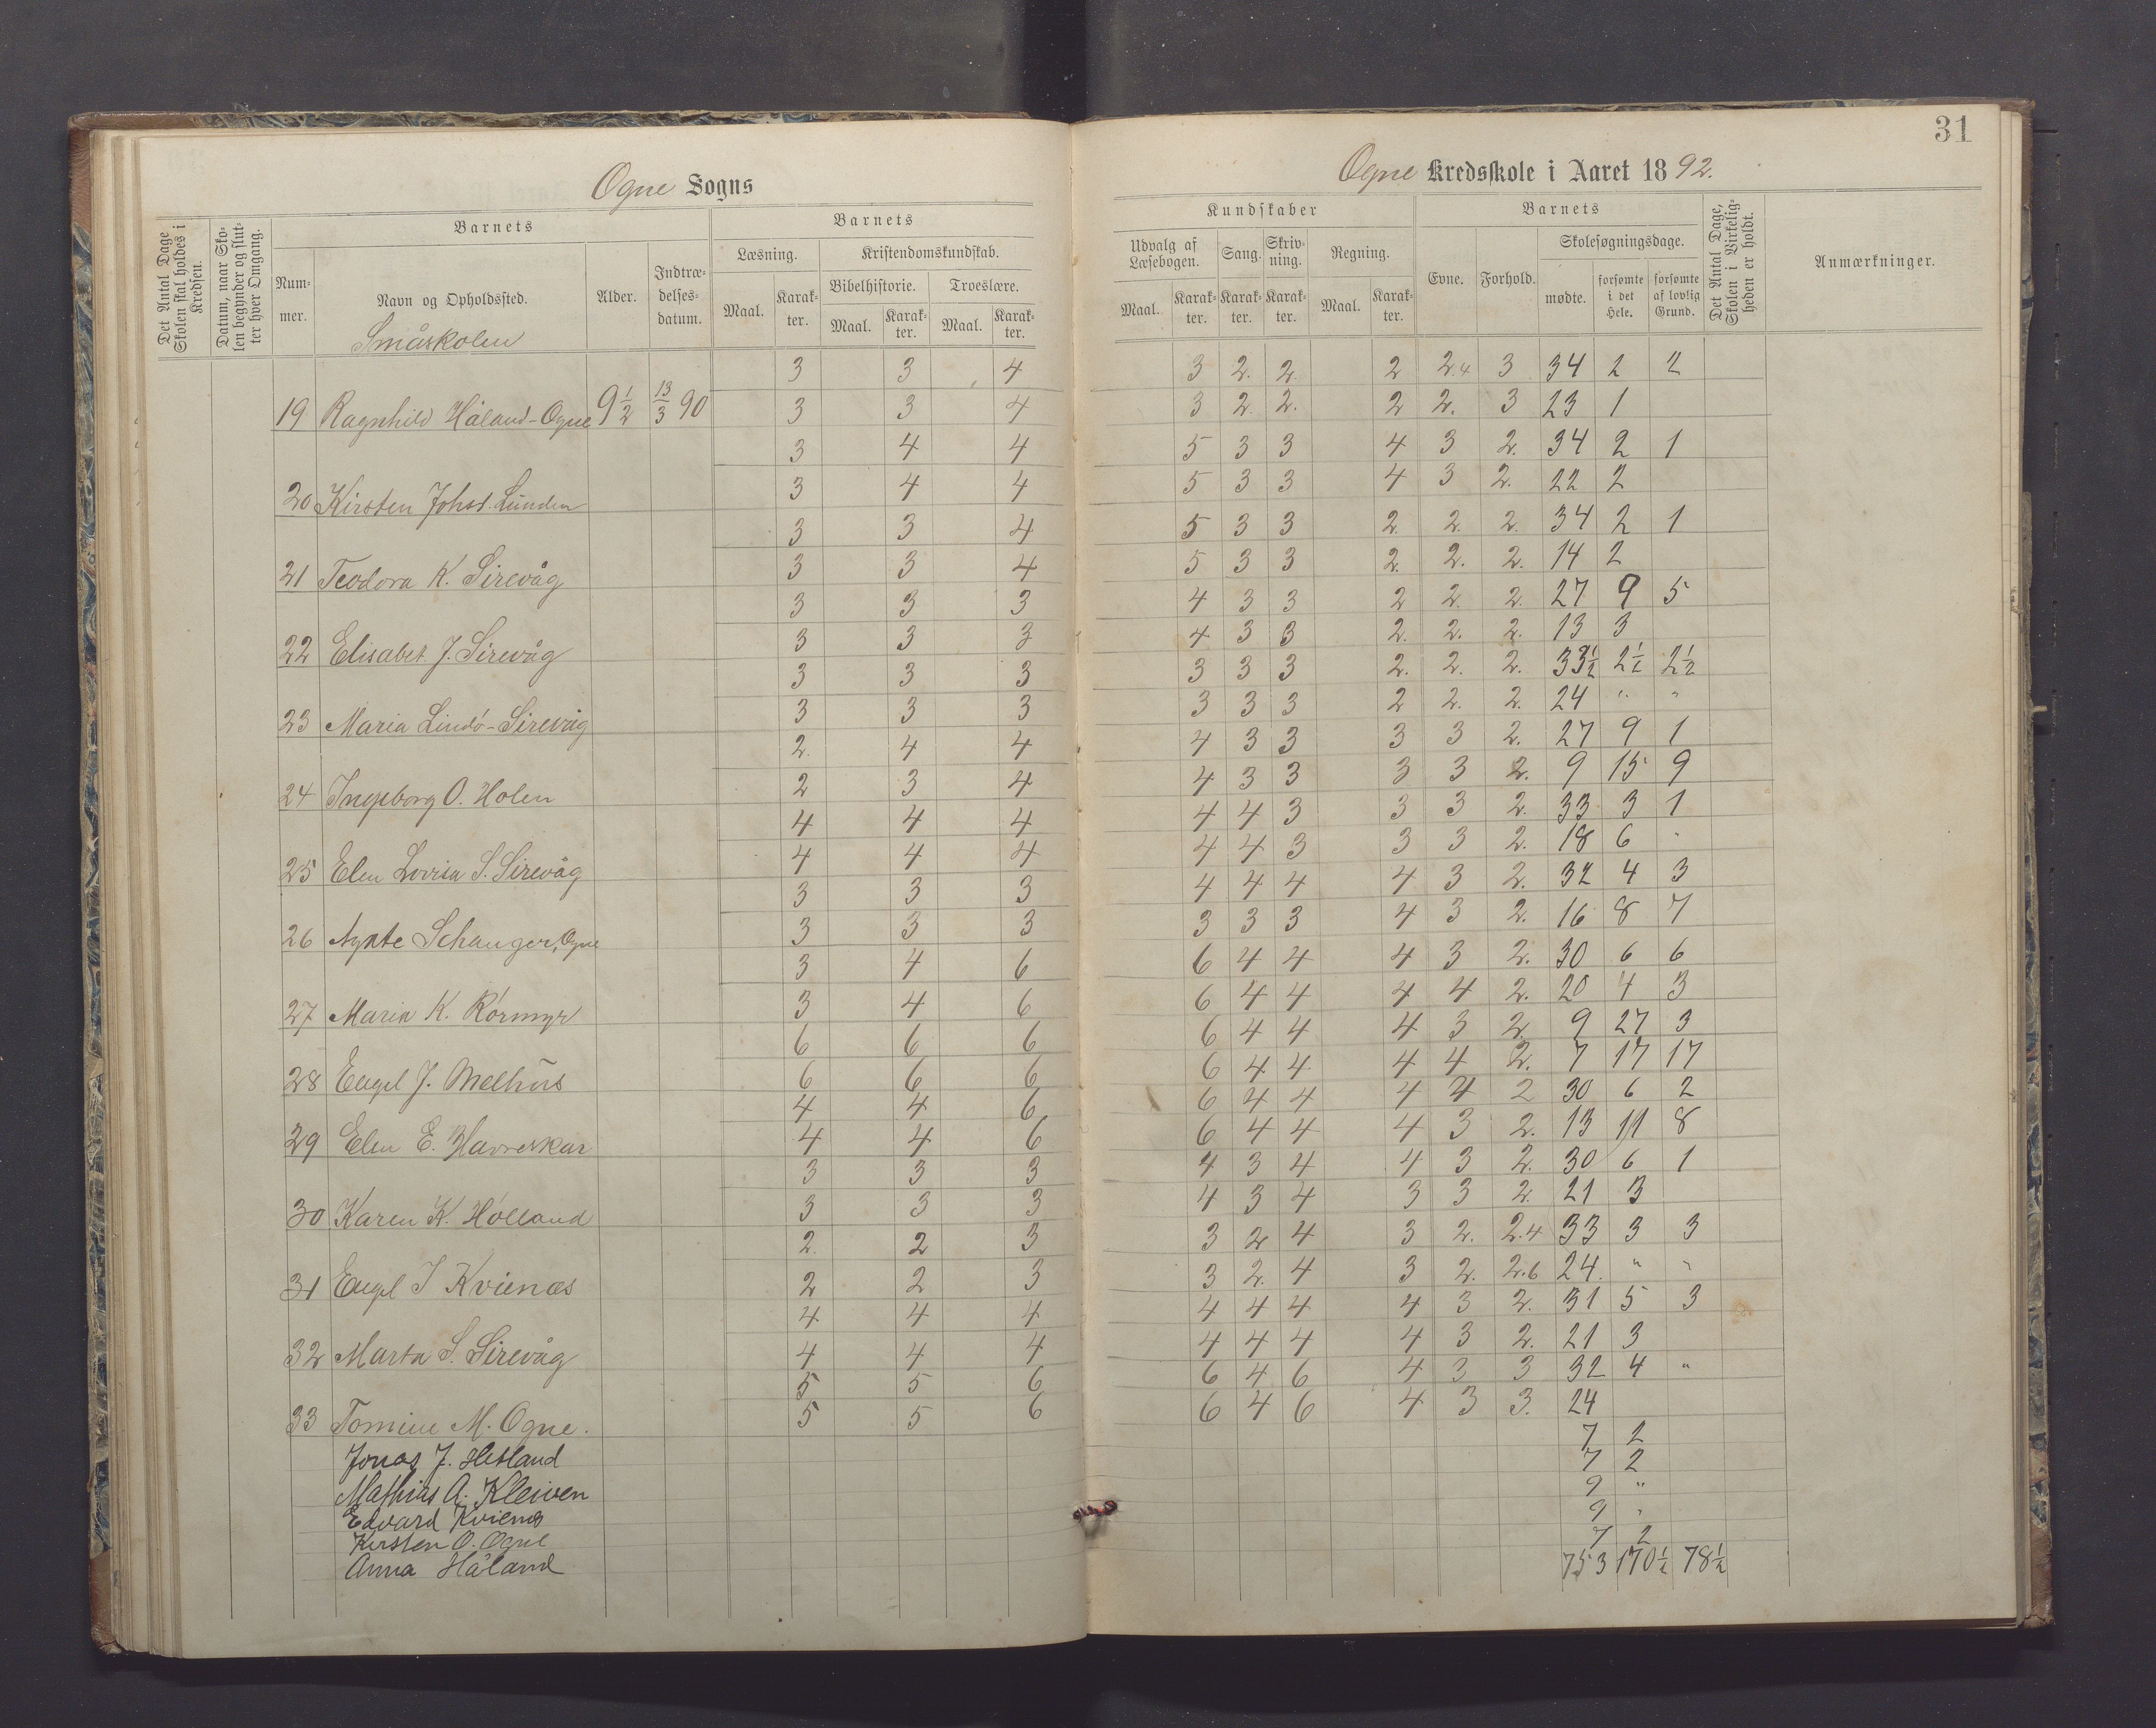 31
Ogne Sogns
Ogne Kredsskole i Aaret 1892.
Det Antal Dage Skolen skal holdes i Kredsen.
Datum, naar Skolen begynder og slutter hver Omgang.
Barnets
Nummer.
Navn og Opholdssted.
Alder.
Indtrædelsesdatum.
Barnets
Læsning.
Kristendomskundskab.
Bibelhistorie.
Troeslære.
Maal.
Karakter.
Maal.
Karakter.
Maal.
Karakter.
Kundskaber
Udvalg af Læsebogen.
Sang.
Skrivning.
Regning.
Maal.
Karakter.
Karakter.
Karakter.
Maal.
Karakter.
Barnets
Evne.
Forhold.
Skolesøgningsdage.
mødte.
forsømte i det Hele.
forsømte af lovlig Grund.
Det Antal Dage, Skolen i Virkeligheden er holdt.
Anmærkninger.
Småskolen
3 3 4 3 2. 2. 2 2.4 3 34 2 2
19 Ragnhild Håland-Ogne 9 1/2 13/3 90 3 3 4 3 2 2. 2 2. 3 23 1
3 4 4 5 3 3 4 3 2. 34 2 1
20 Kirsten Johsd. Lunden 3 4 4 5 3 3 4 3 2. 22 2
3 3 4 5 3 3 2. 2. 2. 34 2 1
21 Teodora K. Sirevåg 3 3 4 5 3 3 2. 2. 2. 14 2
3 3 3 4 3 3 2 2. 2. 27 9 5
22 Elisabet J. Sirevåg 3 3 3 4 3 3 2. 2. 2. 13 3
3 3 3 3 3 3 2. 2. 2. 33 1/2 2 1/2 2 1/2
23 Maria Lindö-Sirevåg 3 3 3 3 3 3 2 2. 2. 24 " "
2. 4 4 4 3 3 3 3 2. 27 9 1
24 Ingeborg O. Holen 2 3 4 4 3 3 3 3 2. 9 15 9
4 4 4 4 4 3 3 3 2. 33 3 1
25 Elen Lovisa S. Sirevåg 4 4 4 4 4 3 3 3 2. 18 6 "
3 3 3 4 4 4 4 3 2. 32 4 3
26 Agate Schanger, Ogne 3 3 3 3 3 3 4 3 2. 16 8 7
3 4 6 6 4 4 4 3 2. 30 6 6
27 Maria K. Rörmyr 3 4 6 6 4 4 4 4 2. 20 4 3
6 6 6 6 4 4 4 3 2. 9 27 3
28 Engel J. Melhus 6 6 6 6 4 4 4 4 2. 7 17 17
4 4 6 6 4 4 4 4 2 30 6 2
29 Elen E. Havreskar 4 4 6 6 4 4 4 3 2. 13 11 8
3 3 3 4 3 4 4 3 2. 30 6 1
30 Karen K. Hölland 3 3 3 4 3 4 3 3 2. 21 3
2. 2 3 3 2 4 3 2. 2.4 33 3 3
31 Engel I Kvienæs 2 2 3 3 2. 4 3 2. 2.6 24. " "
4 4 4 4 4 4 4 3 2. 31 5 3
32 Marta S. Sirevåg 4 4 4 4 4 4 4 3 2. 21 3
5 5 6 6 4 6 4 3 3 32 4 "
33 Tomine M. Ogne. 5 5 6 6 4 6 4 3 3. 24
Jonas J. Hetland 7 2
Mathias A. Kleiven 7 2
Edvard Kvienæs 9 "
Kirsten O. Ogne 9 "
Anna Håland 7 2
753 170 1/2 78 1/2